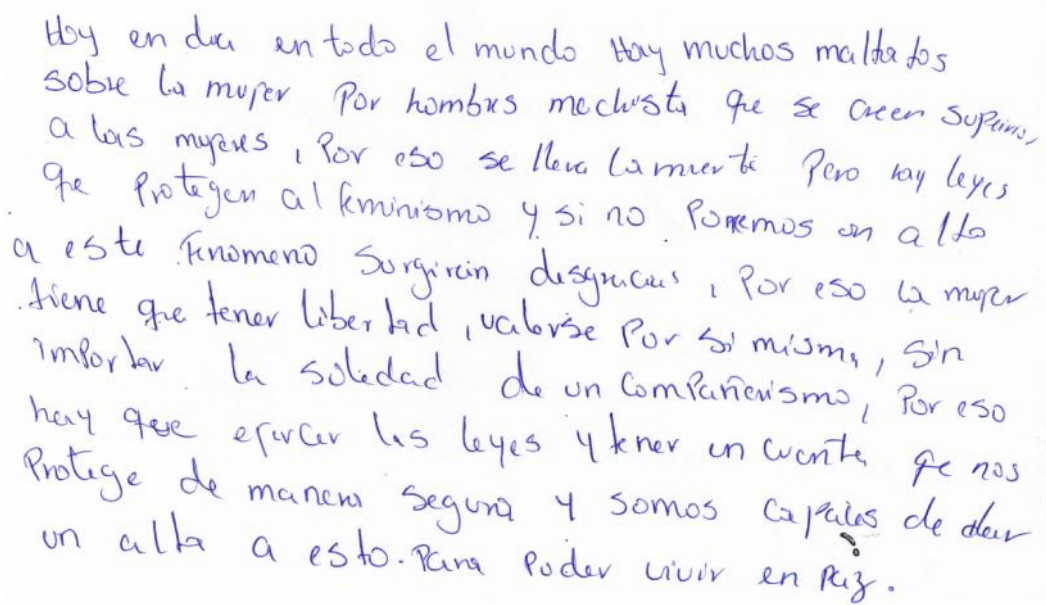 Hoy en dia en todo el mundo Hay muchos maltratos
sobre la mujer Por hombres machista que se creen superiores,
a las mujeres, Por eso se lleva la muerte Pero hay leyes
que Protegen al feminismo y si no Ponemos un alto
a este Fenomeno Surgiran desgracias, Por eso la mujer
tiene que tener libertad, valorse Por si misma, Sin
importar la soledad de un Compañerismo, Por eso
hay que ejercer las leyes y tener en cuenta que nos
Protege de manera Segura y somos capales de dar
un alta a esto. Para Poder vivir en Paz.